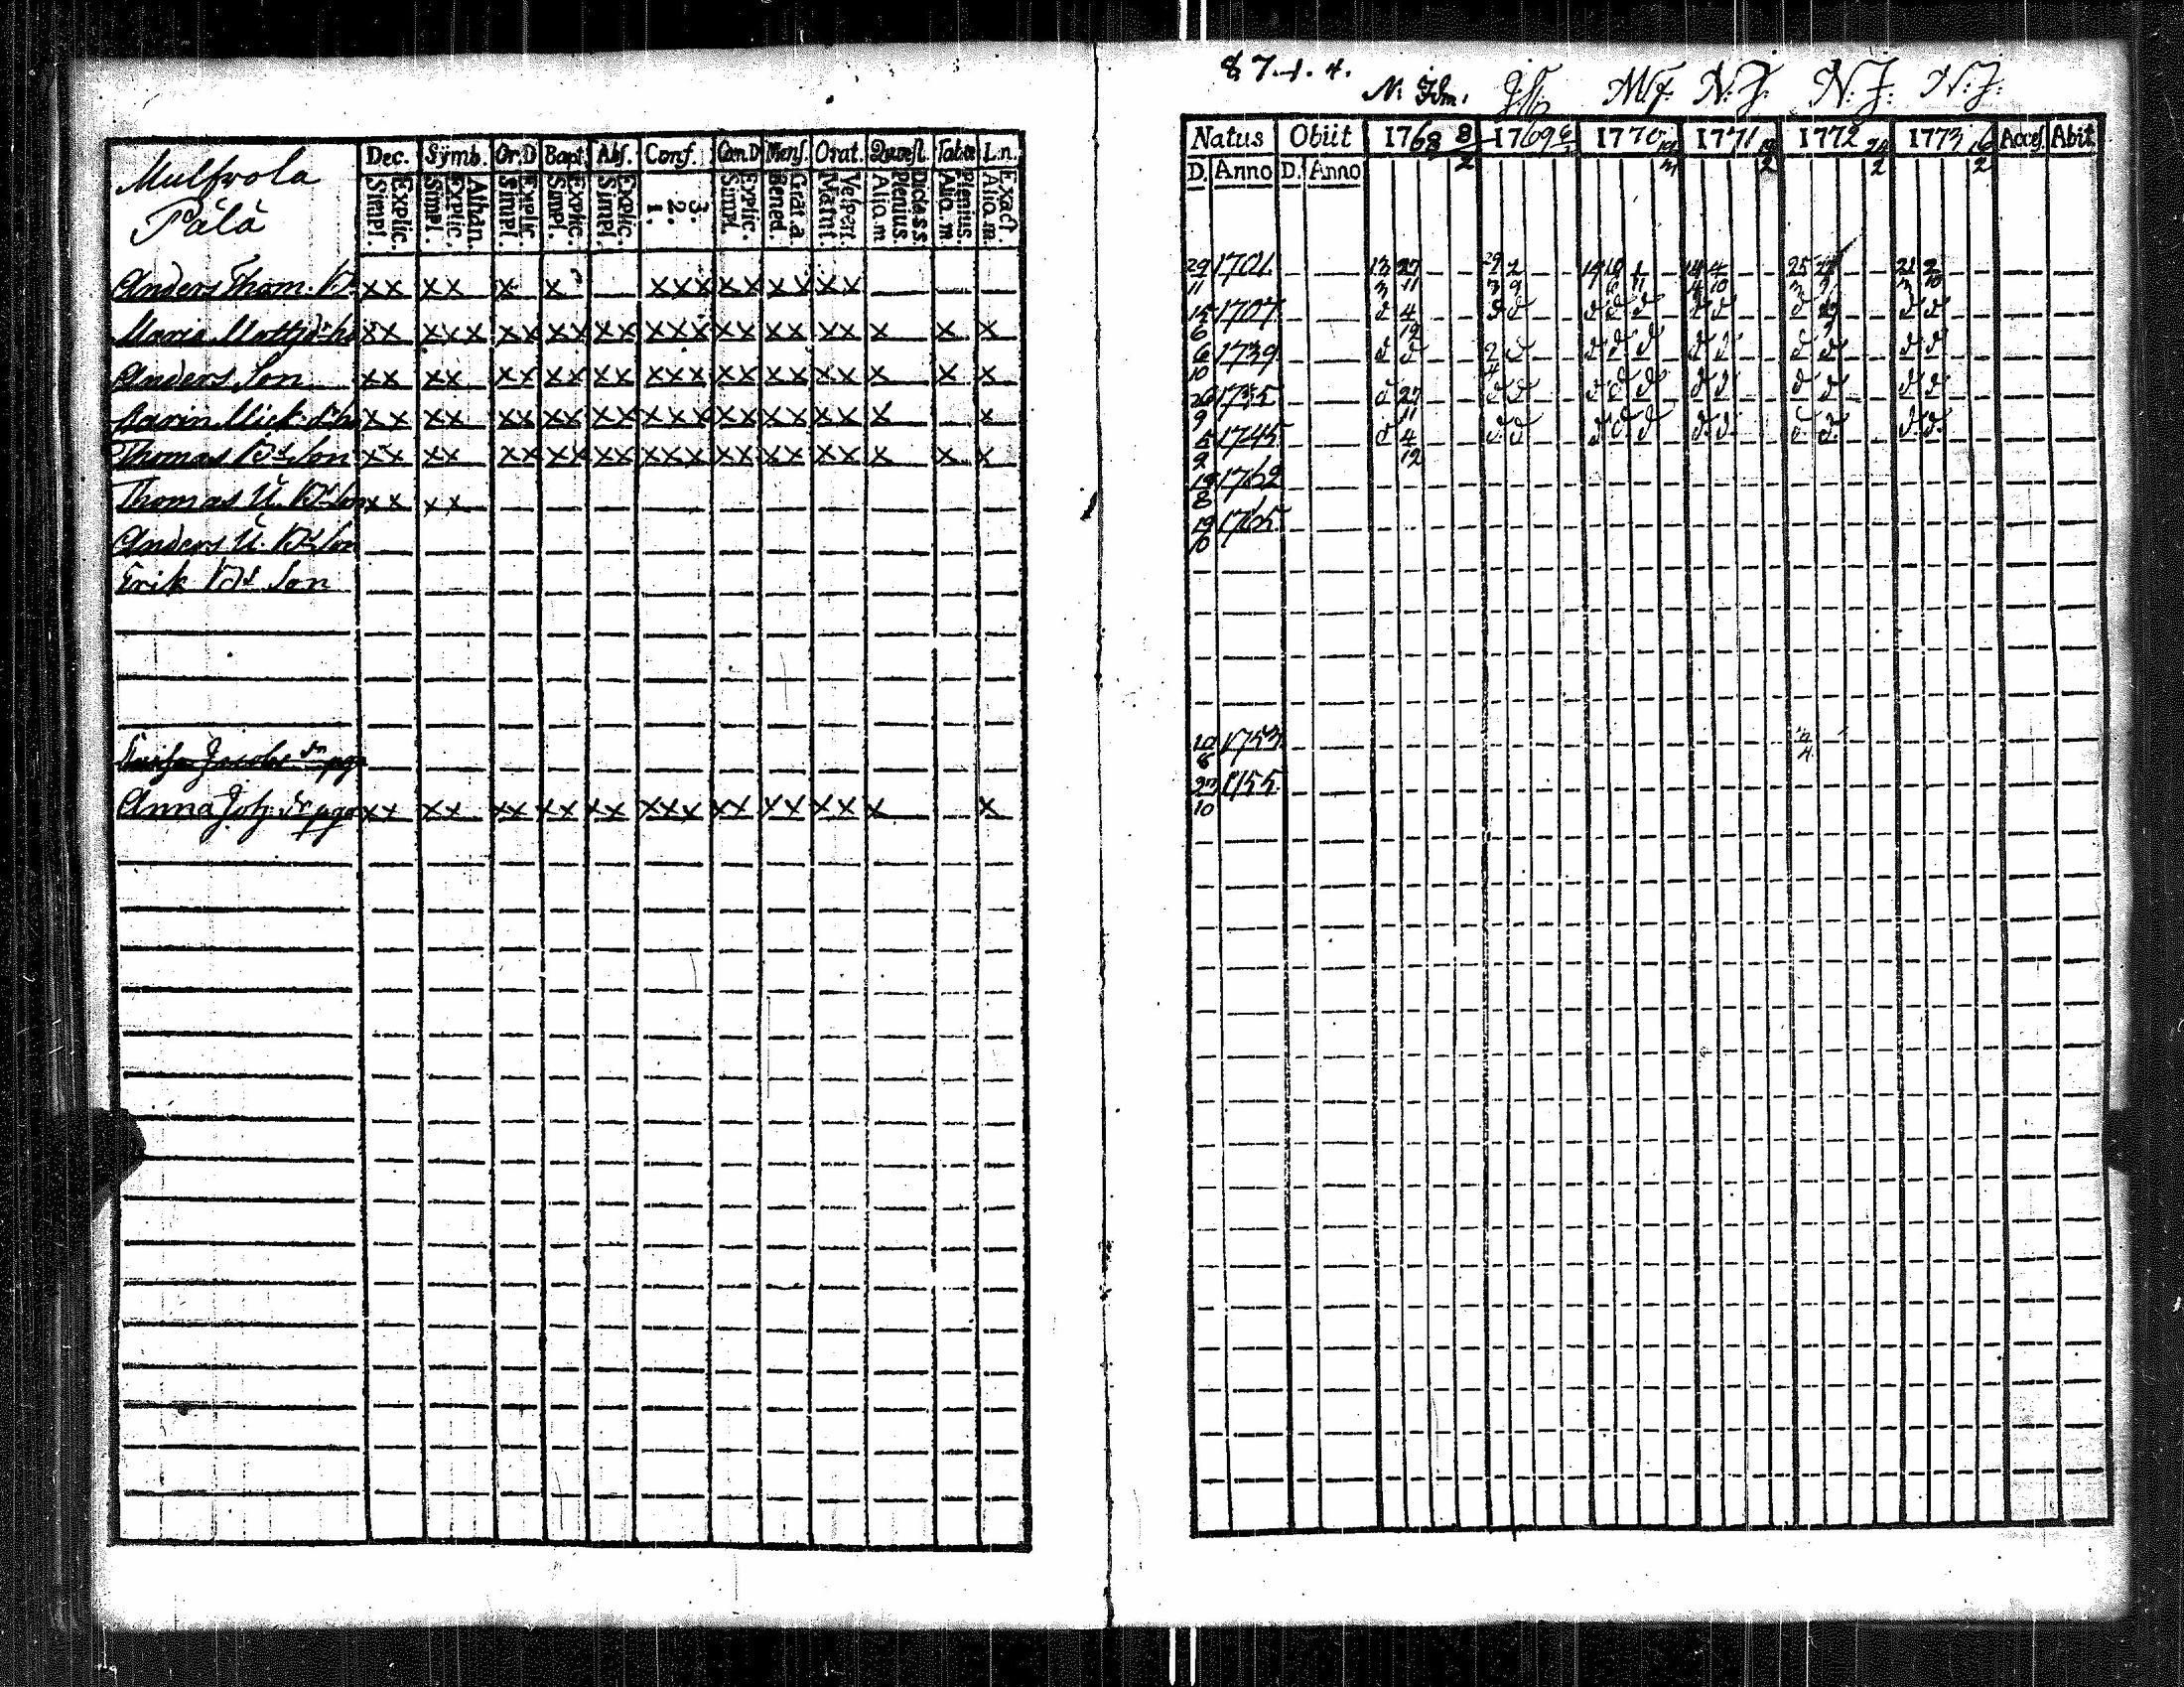 Mulfvola
Pålå
Dec. Symb. Or.D Bapt. Abs. Conf. Can.D Mens. Orat. Quæst. Tabæ L.n.
Explic. Simpl. Athan. Explic. Simpl. Explic. Simpl. Explic. Simpl. Explic. Simpl. 3. 2. 1. Explic. Simpl. Grat.a Bened. Vesperi. Matut. Dicta s.s Plenius. Aliq.m Plenius. Aliq.m Exact. Aliq.m
Anders Thom. xx xx x x xxx xx xx xx
Maria Matts dr hu xx xxx xx xx xx xxx xx xx xx x x x
Anders Son xx xx xx xx xx xxx xx xx xx x x x
Karin Mick. dr hu xx xx xx xx xx xxx xx xx xx x x
Thomas Bd. Son xx xx xx xx xx xxx xx xx xx x x x
Thomas U. Bd. Son xx xx
Anders U. Bd. Son
Erik Bd. Son
Jacobs dr pga
Anna Joh. dr pga xx xx xx xx xx xxx xx xx xx x x
87.-1.4.
N: Idm. M.J: N: J: N: J: N: J:
Natus Obiit 1768 8/2 1769 1770 1771 1772 24/2 1773 16/2 Acces. Abit
D. Anno D. Anno
29/11 1701 13/3 27/11 29/3 2/9 21/3 2/10
15/6 1707 d 4/12 d d d d d d d d d d
6/10 1739 d d d d d d d d d d d
26/9 1735 d 27/11 d d d d d d d d d d d
5/2 1745 d 4/12 d d d d d d d d d d d
19/8 1762
19/10 1765
10/6 1753
27/10 1755